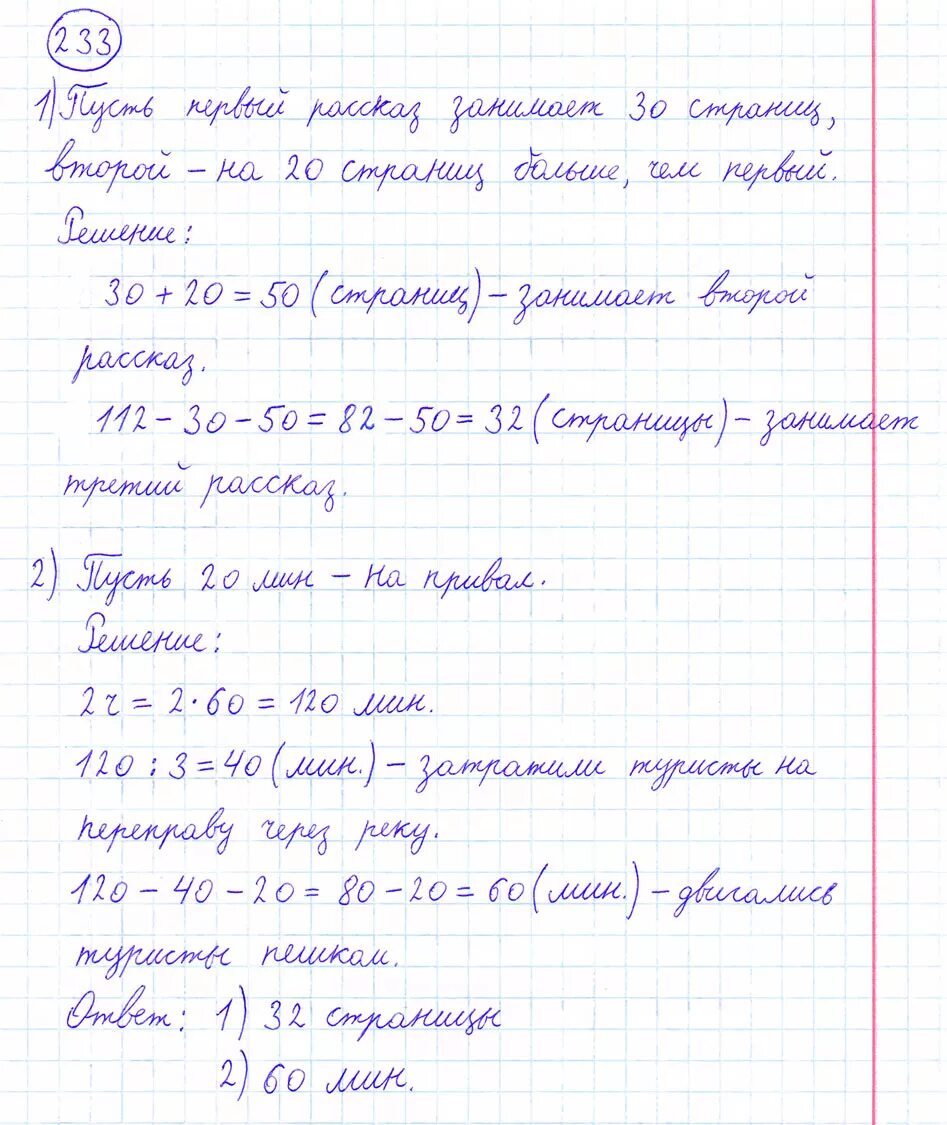 233
1) Пусть первый рассказ занимает 30 страниц,
второй – на 20 страниц больше, чем первый.
Решение:
30 + 20 = 50 (страниц) – занимает второй
рассказ.
112 – 30 – 50 = 82 – 50 = 32 (страницы) – занимает
третий рассказ.
2) Пусть 20 мин – на привал.
Решение:
2 ч = 2 · 60 = 120 мин.
120 : 3 = 40 (мин.) – затратили туристы на
переправу через реку.
120 – 40 – 20 = 80 – 20 = 60 (мин.) – двигались
туристы пешком.
Ответ: 1) 32 страницы
2) 60 мин.